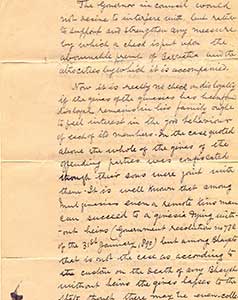 The Governor in council would
not desire to interfere with, but rather
to support and strengthen any measure
by which a check is put upon the
abominable crime of and the
atrocities by which it is accompanied.
Now it is really no check on disloyalty
if the giras of the girassias has behaved
disloyal, remains in his family or is
to feel interest in the good behaviour
of each of its members. In the case quoted
above the whole of the giras of the
offending parties was confiscated
though their sons were joint with
them. It is well known that among
girassias even a remote kins man
can succeed to a girassia dying with-
out heirs (Government resolution no 778
of the 31st January, ) but among Bhayats
that is not the case as according to
the custom on the death of any Bhayat
without heirs the giras lapses to the
State though there may be even